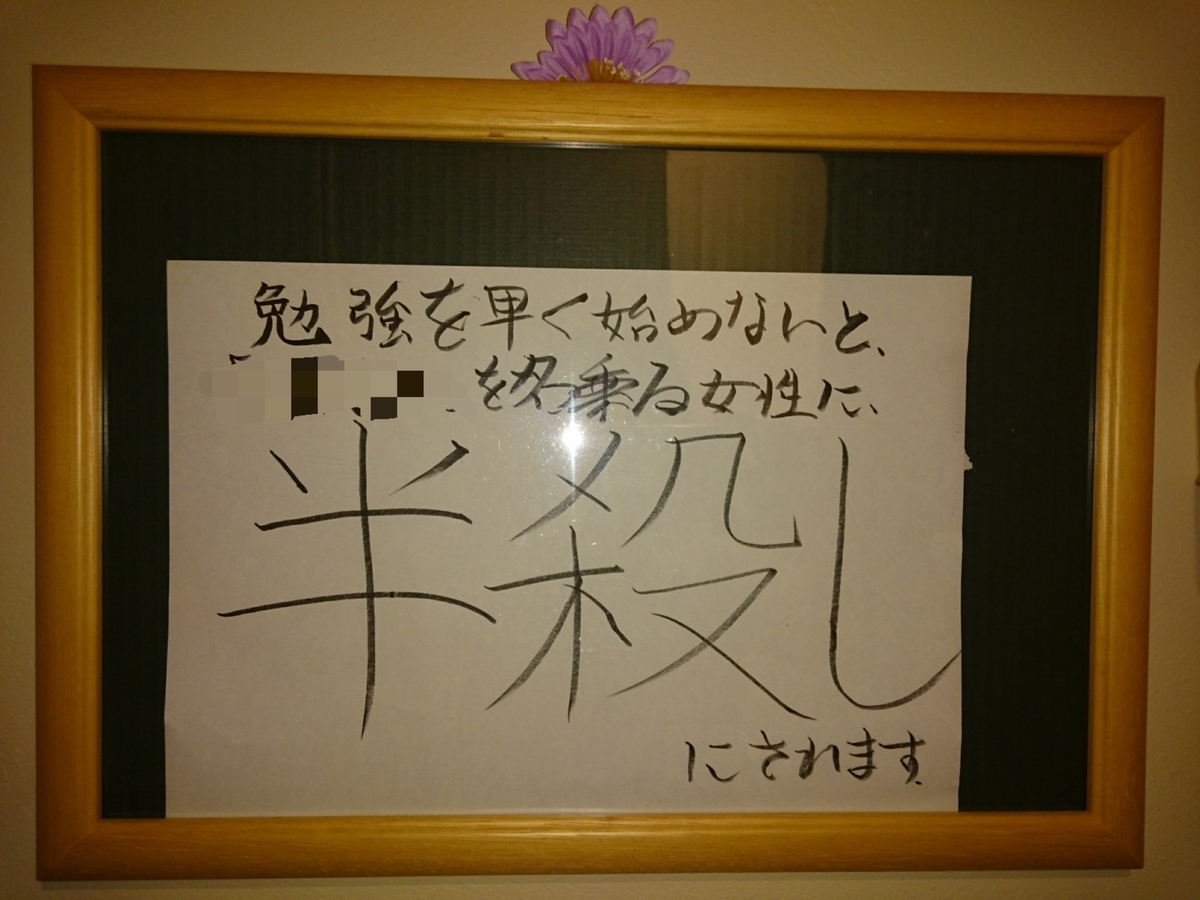 勉強を早く始めないと、
を名乗る女性に、
半殺し
にされます